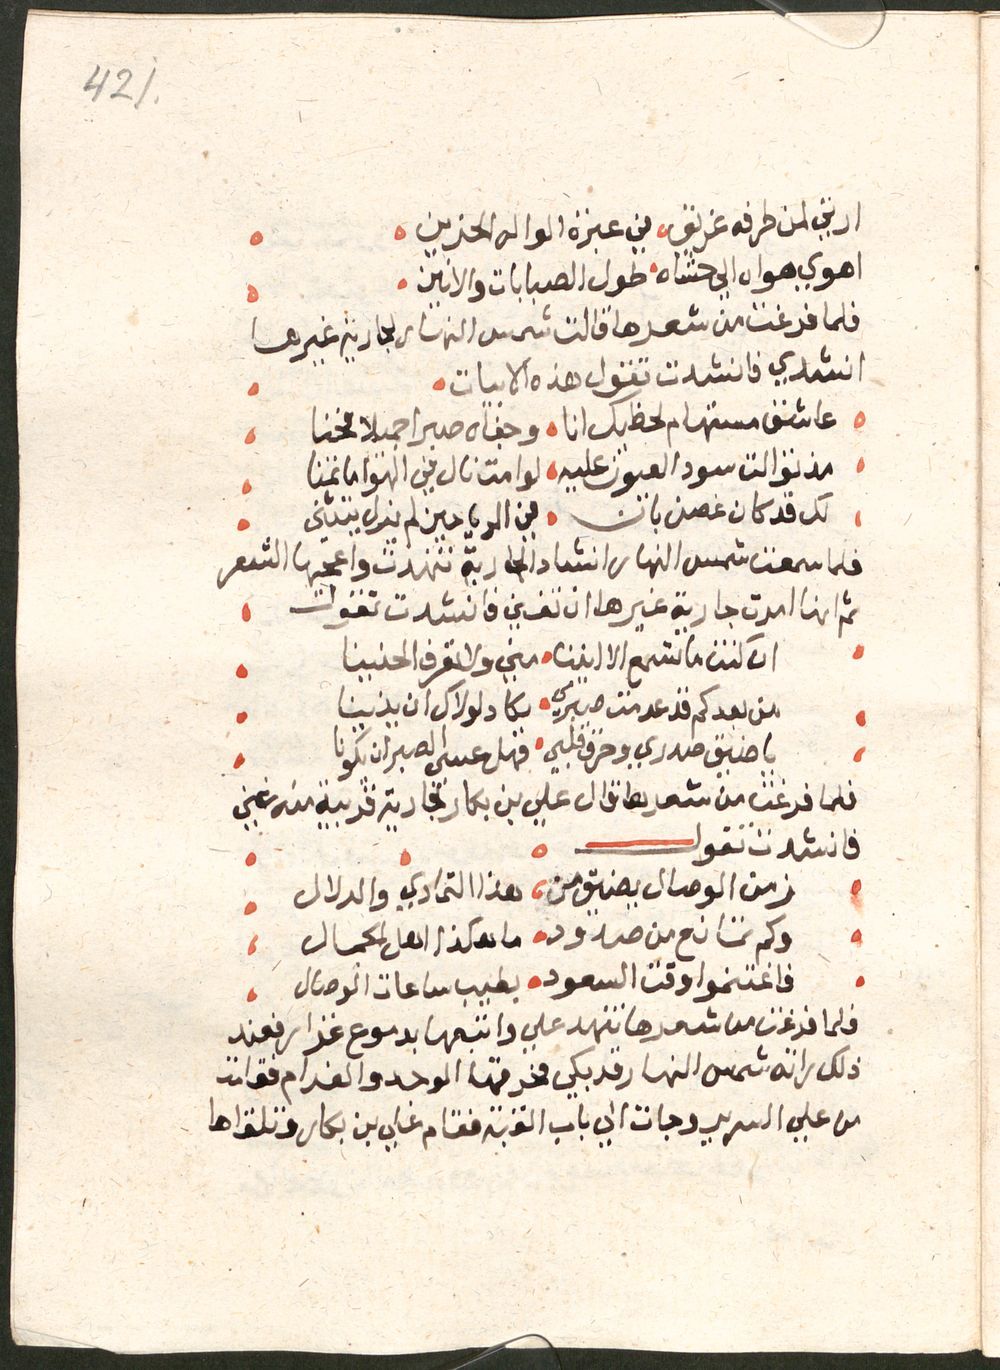 421.
ارثي لمن طرفه غريق في عبرة الواله الحزين
اهوي هواه الي حشاه طول الصبابات والانين
فلما فرغت من شعرها قالت شمس النهار لجارية غيرها
انشدي فانشدت تقول هذه الابيات
عاشق مستهام لحظيك انا وجفاه صبرا جميلا
مذ توالت سود العيون عليه لوامت نال في الهوا ما تمنا
لك قد كان غصن بان في الرياحين لم يزل يتثني
فلما سمعت شمس النهار انشاد الجارية تنهدت واعجبها الشعر
ثم انها امرت جارية غيرها ان تغني فانشدت تقول
ان كنت ما تسمع الا انينا مني ولا تعرف الحنينا
من بعدكم قد عدمت صبري كاد لولاك ان يذيبنا
يا ضيق صدري وحرق قلبي فهل عسي الصبر ان يكونا
فلما فرغت من شعرها قال علي بن بكار لجارية قريبة منه غني
فانشدت تقول
زمن الوصال يضيق من هذا التمادي والدلال
وكم تمانع من صدود ما هكذا اهل الجمال
فاغتنموا وقت السعود بطيب ساعات الوصال
فلما فرغت من شعرها تنهد علي واتبعها بدموع غزار فعند
ذلك راته شمس النهار قد بكي فحرقها الوجد والغرام فقامت
من علي السرير وجات الي باب القبة فقام علي بن بكار وتلقاها